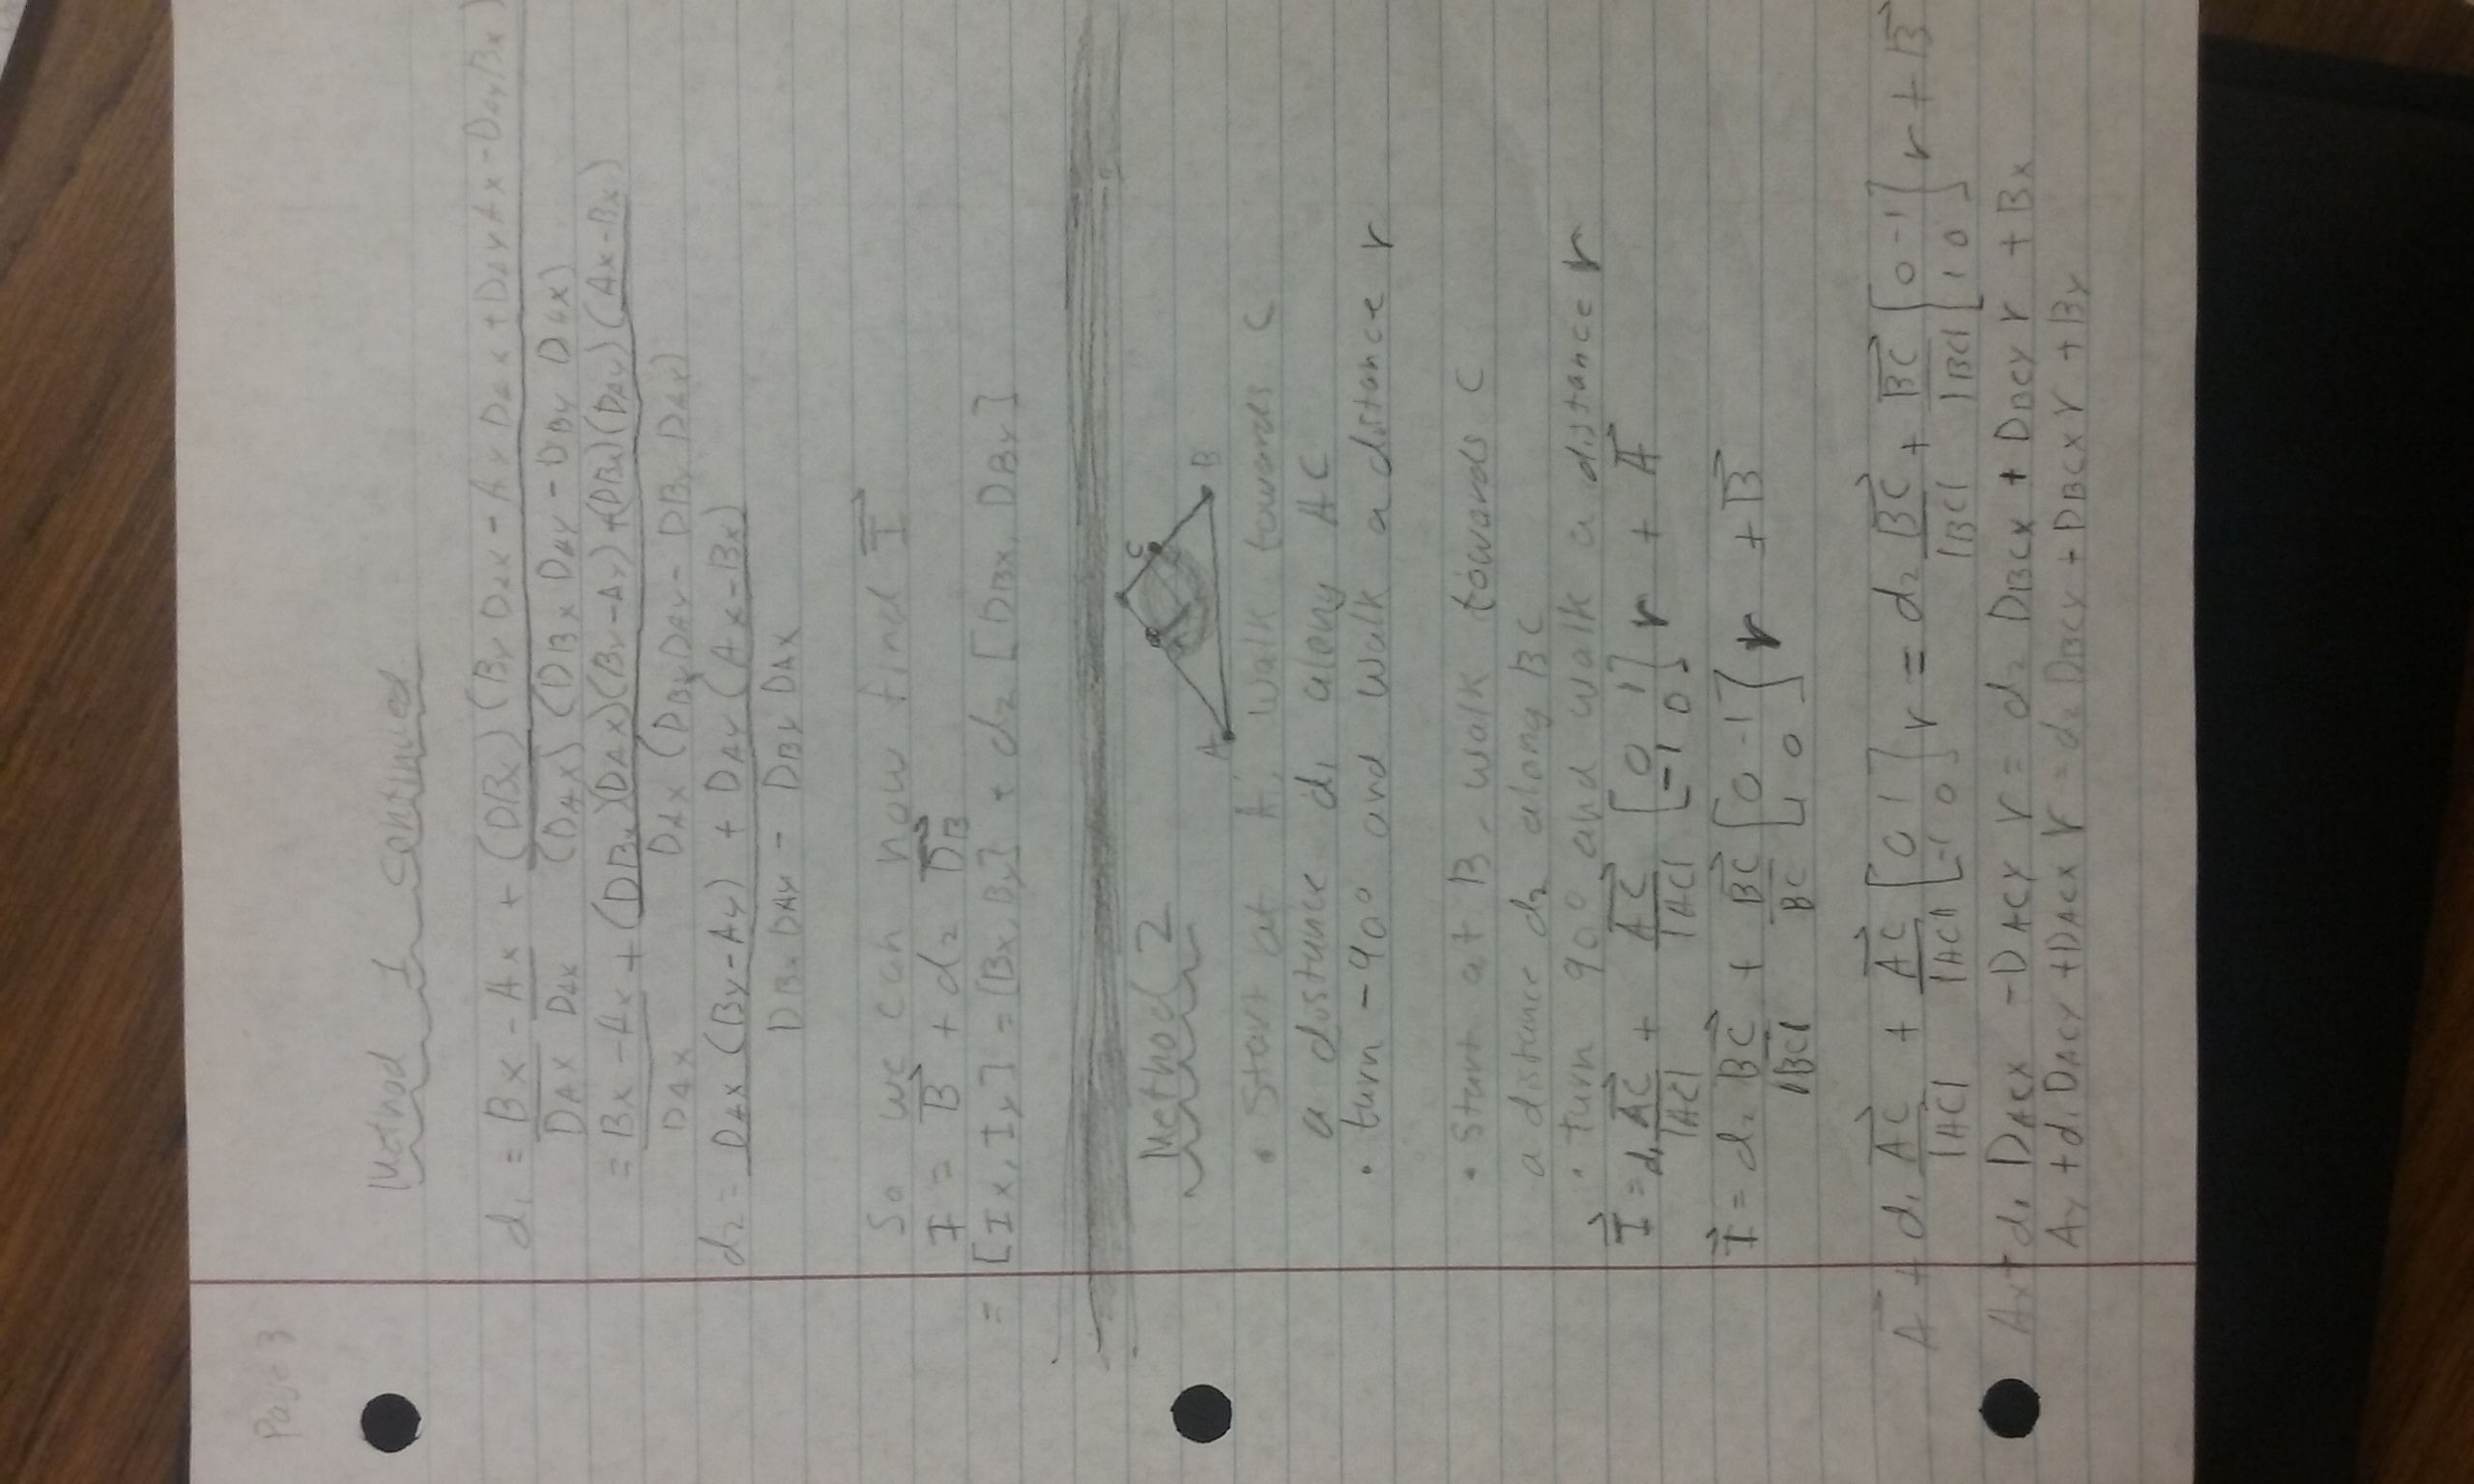 Page 3
Method 1 continued
d₁ = Bx/DAx - Ax/DAx + (DBx)(By DAx - Ay DAx + DAy Ax - DAy Bx)/(DAx)(DBx DAy - DBy DAx)
= Bx - Ax/DAx + (DBx)(DAx)(By-Ay) + (DBx)(DAy)(Ax-Bx)/DAx (DBx DAy - DBy DAx)
d₂ = DAx (By-Ay) + DAy (Ax-Bx)/DBx DAy - DBy DAx
So we can now find I⃗
I = B⃗ + d₂ D⃗B
= [Ix, Iy] = [Bx, By] + d₂ [DBx, DBy]
Method 2
C
A B
• Start at A, walk towards C
a distance d₁ along AC
• turn -90° and walk a distance r
• Start at B, walk towards C
a distance d₂ along BC
• turn 90° and walk a distance r
I⃗ = d₁ AC⃗/|AC| + AC⃗/|AC| [0 1; -1 0] r + A⃗
I⃗ = d₂ BC⃗/|BC| + BC⃗/BC [0 -1; 1 0] r + B⃗
A⃗ + d₁ AC⃗/|AC| + AC⃗/|AC| [0 1; -1 0] r = d₂ BC⃗/|BC| + BC⃗/|BC| [0 -1; 1 0] r + B⃗
Ax + d₁ DACx - DACy r = d₂ DBCx + DBCy r + Bx
Ay + d₁ DACy + DACx r = d₂ DBCy + DBCx r + By